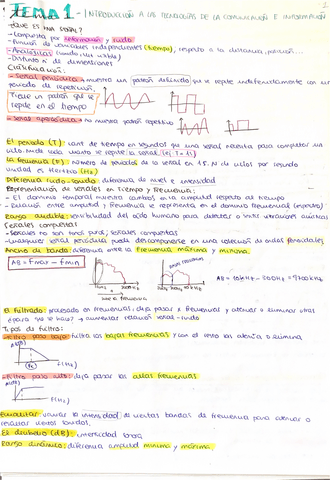 TEMA 1 - INTRODUCCIÓN A LAS TECNOLOGÍAS DE LA COMUNICACIÓN E INFORMACIÓN
¿QUÉ ES UNA SEÑAL?
- Compuesta por información y ruido
- Función de variables independientes (tiempo), respecto a la distancia, presión...
- Distinto nº de dimensiones
Clasificación:
- Señal periódica → muestra un patrón definido que se repite indefinidamente con un
periodo de repetición.
Tiene un patrón que se
repite en el tiempo
- Señal aperiódica → no muestra patrón repetitivo
El periodo (T): cant de tiempo en segundos que una señal necesita para completar un
ciclo.
La frecuencia (F): número de periodos de la señal en 1s. Nº de ciclos por segundo
unidad es Hertzio (Hz)
Diferencia ruido-sonido: diferencia de nivel e intensidad
Representación de señales en tiempo y frecuencia:
- El dominio temporal muestra cambios en la amplitud respecto al tiempo
- Relación entre amplitud y frecuencia se representa en el dominio frecuencial (espectro)
Rango audible: sensibilidad del oído humano para detectar
Señales compuestas
- Señales no son tonos puros, señales compuestas
- Cualquier señal periódica puede descomponerse en una colección de ondas senoidales
Ancho de banda: distancia entre la frecuencia máxima y mínima.
AB = Fmax - Fmin
El filtrado: procesado en frecuencias, deja pasar x frecuencias y atenuar o eliminar otras
¿para qué se hace? → aumentar relación señal-ruido
Tipos de filtro:
- Filtro paso bajo: filtra las bajas frecuencias y con el resto las atenúa o elimina
F(Hz)
- Filtro paso alto: deja pasar las altas frecuencias
F(Hz)
Ecualizar: variar la intensidad de ciertas bandas de frecuencia para atenuar o
resaltar ciertos sonidos.
El decibelio (dB): intensidad sonora
Rango dinámico: diferencia amplitud mínima y máxima